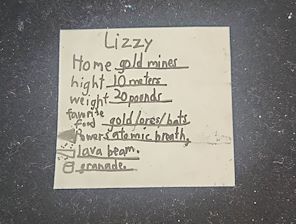 Lizzy
Home gold mines
hight 10 meters
weight 20 pounds
favorite
food gold/ores/bats
Powers atomic breath,
lava beam.
granade.